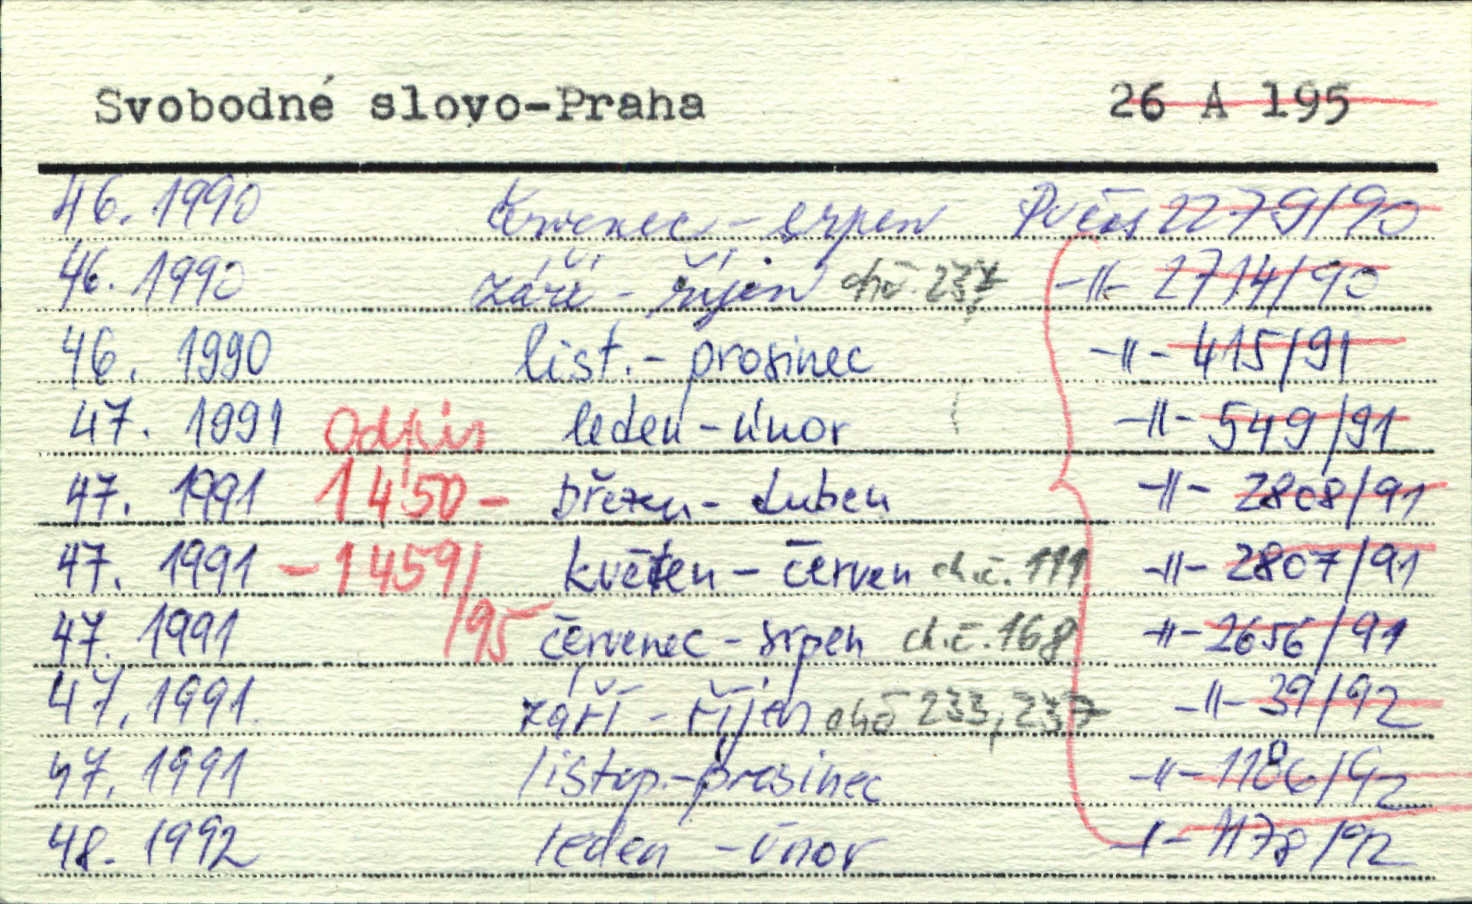 Svobodné slovo-Praha 26 A 195
46. 1990 červenec - srpen Pvčas 2279/90
46. 1990 září - říjen chč. 237 -"- 2714/90
46. 1990 list. - prosinec -"- 415/91
47. 1991 Odpis leden - únor -"- 549/91
47. 1991 1450 - březen - duben -"- 2808/91
47. 1991 - 1459/ květen - červen ch.č. 111 -"- 2807/91
47. 1991 /95 červenec - srpen ch.č. 168 -"- 2656/91
47. 1991 září - říjen chč 233, 237 -"- 39/92
47. 1991 listop. - prosinec -"- 1186/92
48. 1992 leden - únor -"- 1178/92